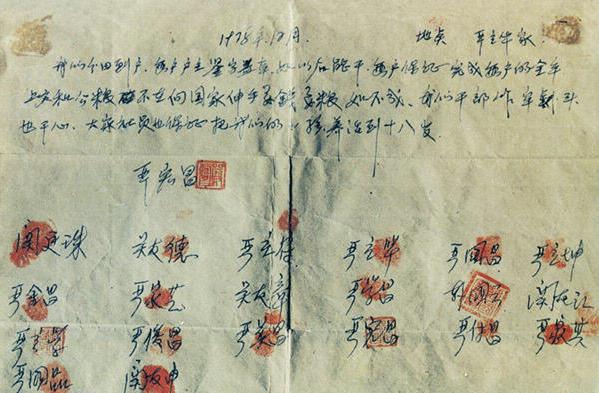 1978年12月 地点 严立华家
我们分田到户,每户户主签字盖章,如以后能干,每户保证完成每户的全年
上交和公粮,不在向国家伸手要钱要粮,如不成,我们干部作牢剎头
也干心,大家社员也保证把我们的小孩养活到十八岁。
严宏昌
关廷珠 关友德 严立符 严立华 严国昌 严立坤
严金昌 严家芝 关友章 严学昌 韩国云 关友江
严立学 严俊昌 严美昌 严宏昌 严付昌 严家其
严国品 关友申